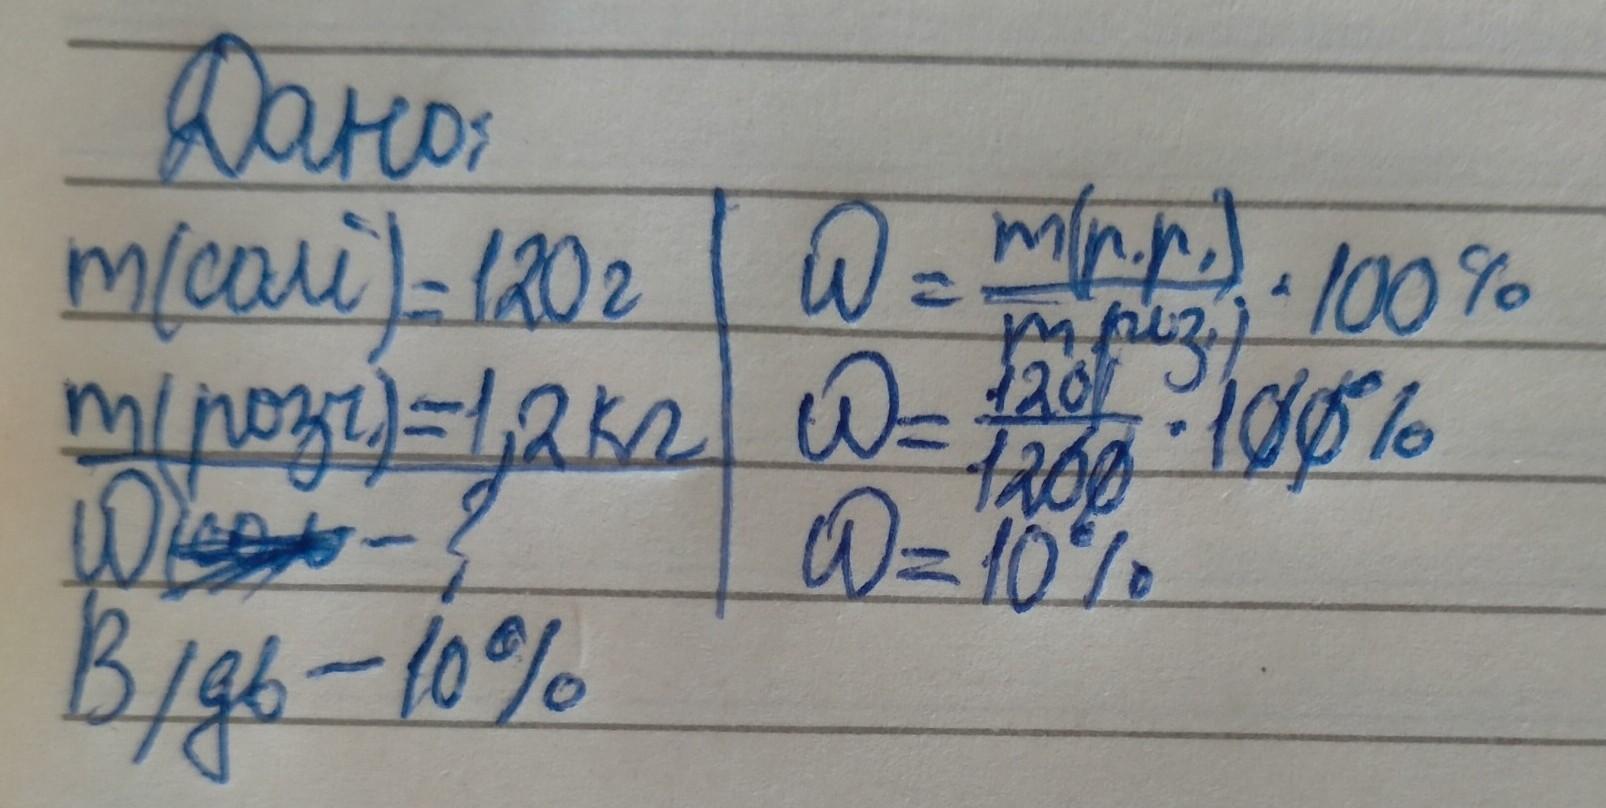 Дано:
m(солі)=120г
m(розч.)=1,2кг
W - ?
В/дь – 10%
W = m(р.р.) / m(роз.) · 100%
W = 120 / 1200 · 100%
W = 10%